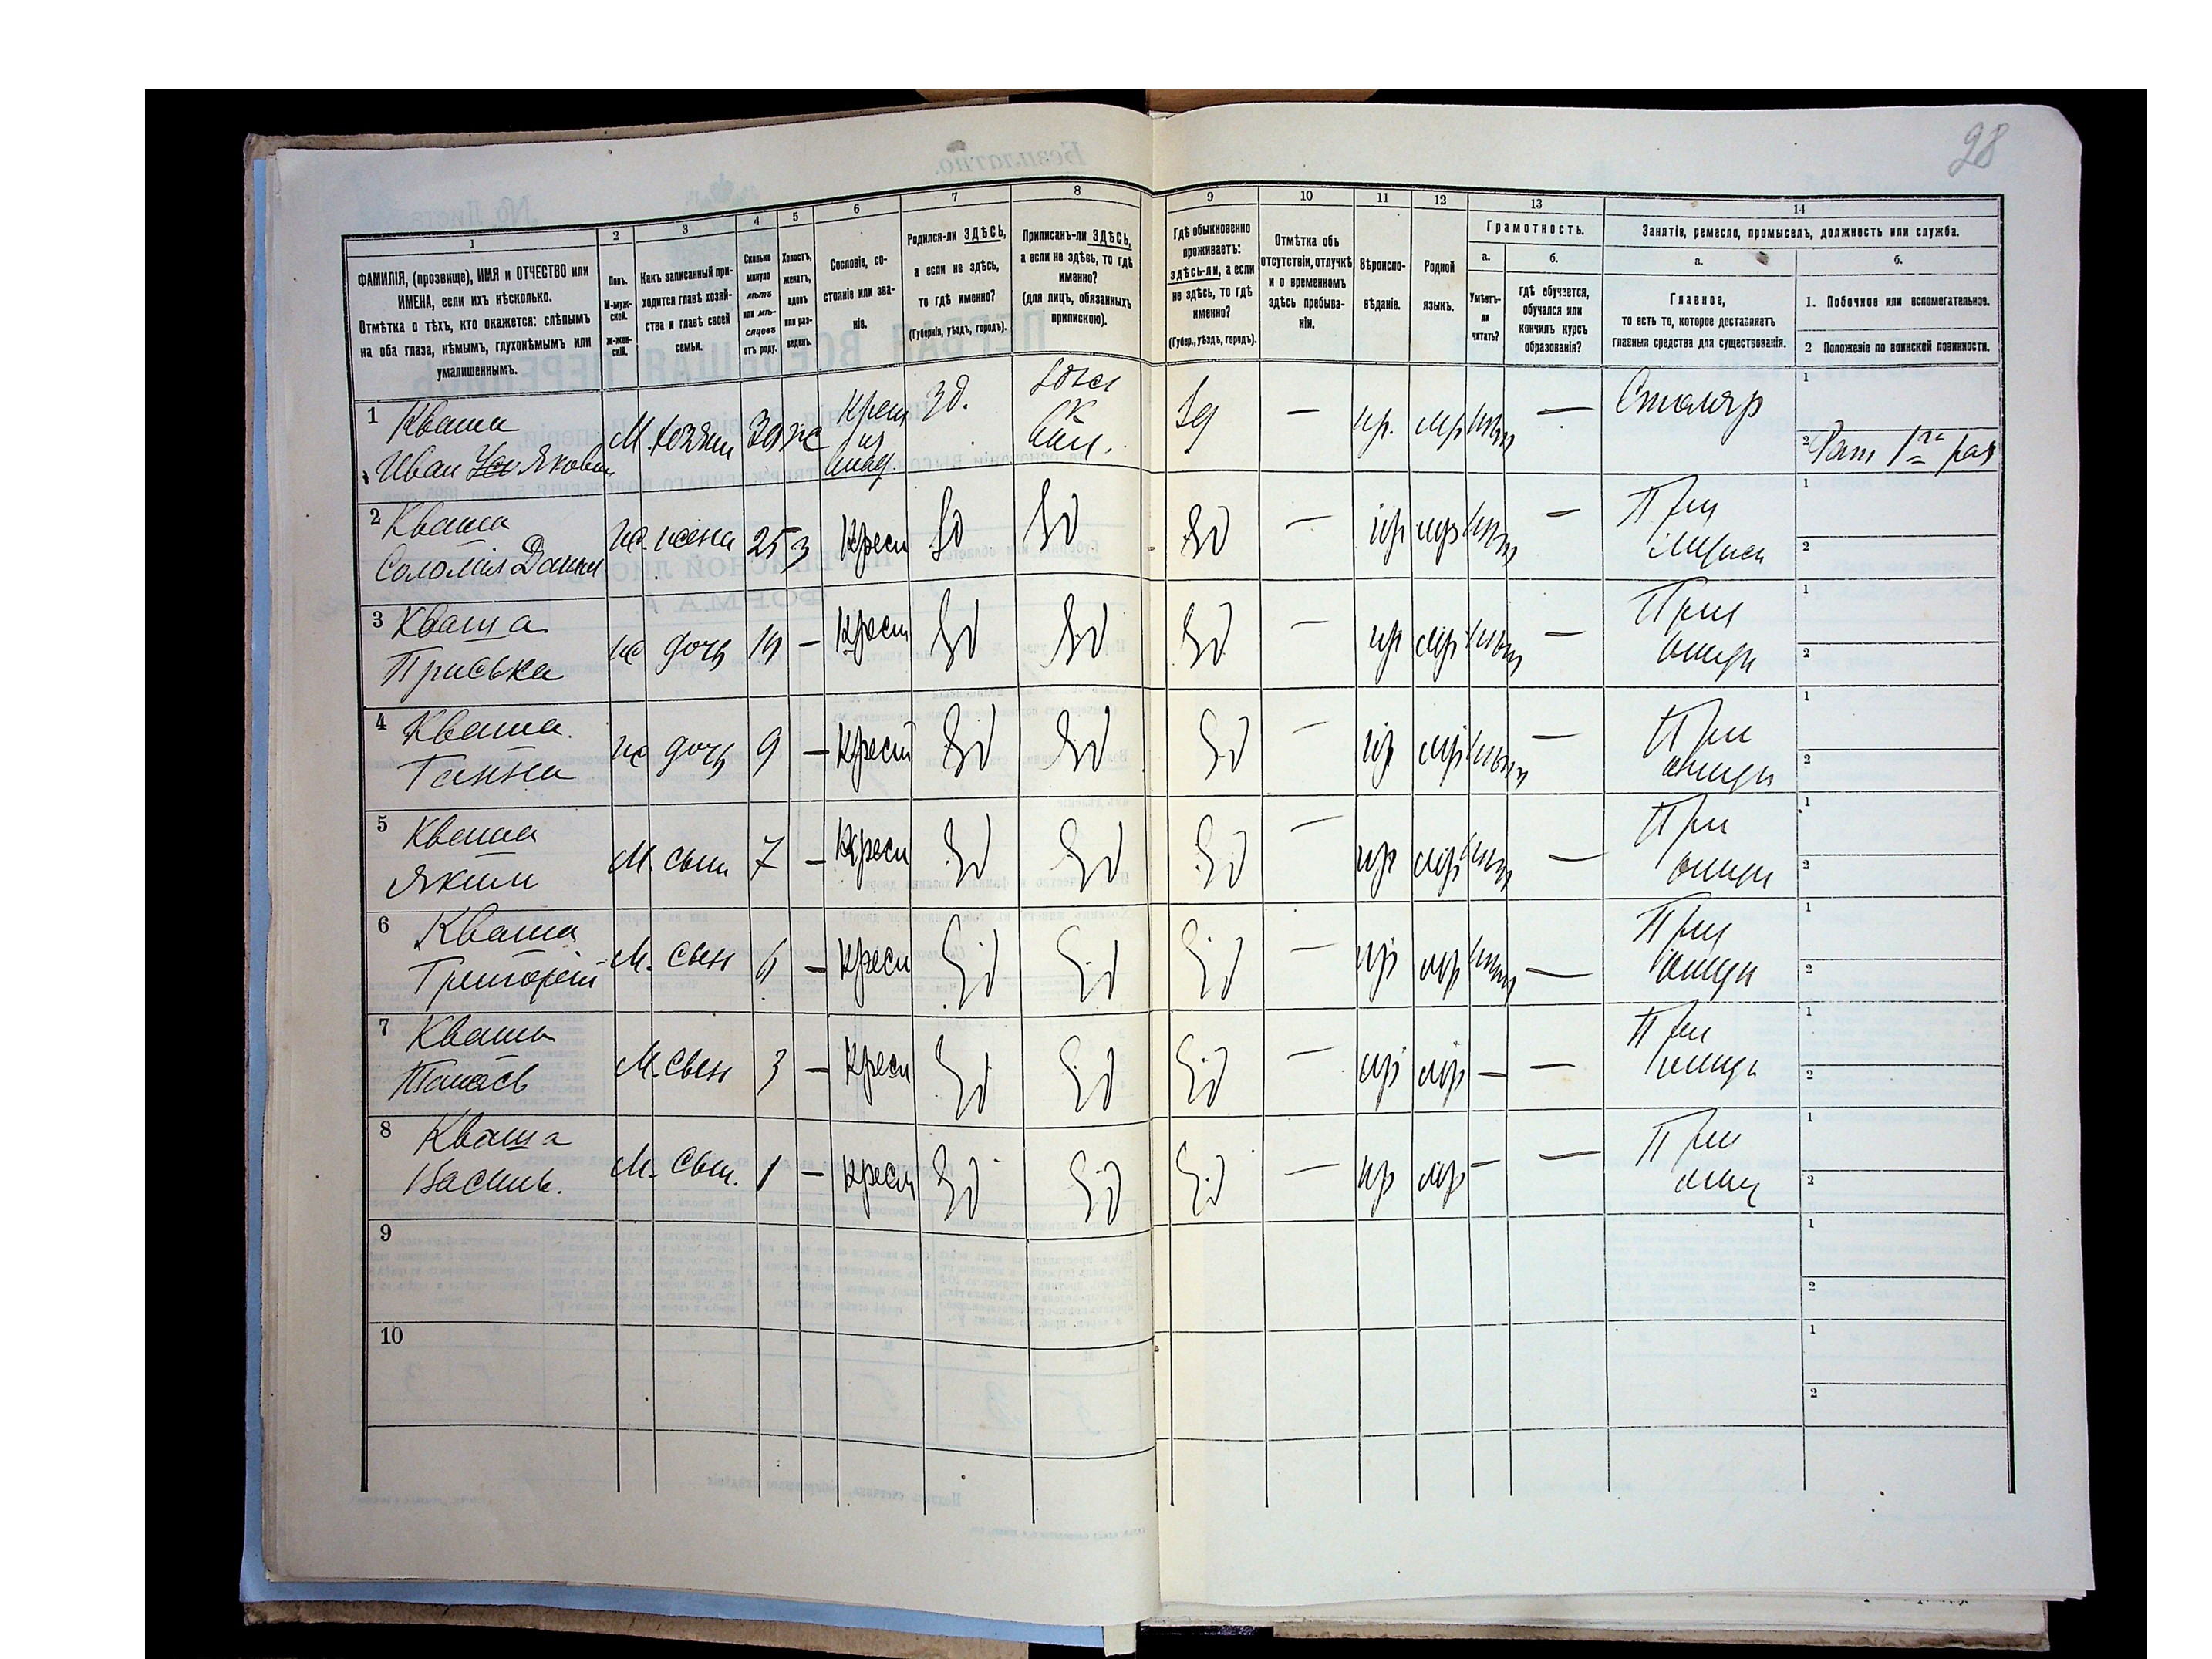 28
1 2 3 4 5 6 7 8 9 10 11 12 13 14
ФАМИЛІЯ, (прозвище), ИМЯ и ОТЧЕСТВО или
ИМЕНА, если ихъ нѣсколько.
Отмѣтка о тѣхъ, кто окажется: слѣпымъ
на оба глаза, нѣмымъ, глухонѣмымъ или
умалишеннымъ.
Полъ.
М-муж-
ской.
Ж-жен-
скій.
Какъ записанный при-
ходится главѣ хозяй-
ства и главѣ своей
семьи.
Сколько
минуло
лѣтъ
или мѣ-
сяцевъ
отъ роду.
Холостъ,
женатъ,
вдовъ
или раз-
веденъ.
Сословіе, со-
стояніе или зва-
ніе.
Родился-ли ЗДѢСЬ,
а если не здѣсь,
то гдѣ именно?
(Губернія, уѣздъ, городъ).
Приписанъ-ли ЗДѢСЬ,
а если не здѣсь, то гдѣ
именно?
(для лицъ, обязанныхъ
припискою).
Гдѣ обыкновенно
проживаетъ:
здѣсь-ли, а если
не здѣсь, то гдѣ
именно?
(Губер., уѣздъ, городъ).
Отмѣтка объ
отсутствіи, отлучкѣ
и о временномъ
здѣсь пребыва-
ніи.
Вѣроиспо-
вѣданіе.
Родной
языкъ.
Грамотность.
а.
Умѣетъ-
ли
читать?
б.
гдѣ обучается,
обучался или
кончилъ курсъ
образованія?
Занятіе, ремесло, промыселъ, должность или служба.
а.
Главное,
то есть то, которое доставляетъ
главныя средства для существованія.
б.
1. Побочное или вспомогательное.
2 Положеніе по воинской повинности.
1 Кваша
Иван Яковл
М. хозяин 39 ж Крест из влад. Зд. Зд — пр. мр Столяр
1
2 Рат 1го раз
2 Кваша
Соломія Данил
ж. жена 25 з Крест Зд Зд Зд — пр мр — При
1
2
3 Кваша
Приська
ж дочь — Крест Зд Зд Зд — пр мр — При
отци
1
2
4 Кваша
Ганна
ж дочь 9 — Крест Зд Зд Зд — пр мр — При
отци
1
2
5 Кваша
Яким
М. сын 7 — Крест Зд Зд Зд — пр мр — При
отци
1
2
6 Кваша
Григорій
М. сын 6 — Крест Зд Зд Зд — пр мр — При
отци
1
2
7 Кваша
Панасъ
М. сын 3 — Крест Зд Зд Зд — пр мр — — При
отци
1
2
8 Кваша
Василь.
М. сын. 1 — Крест Зд Зд Зд — пр мр — — При
отц
1
2
9
1
2
10
1
2